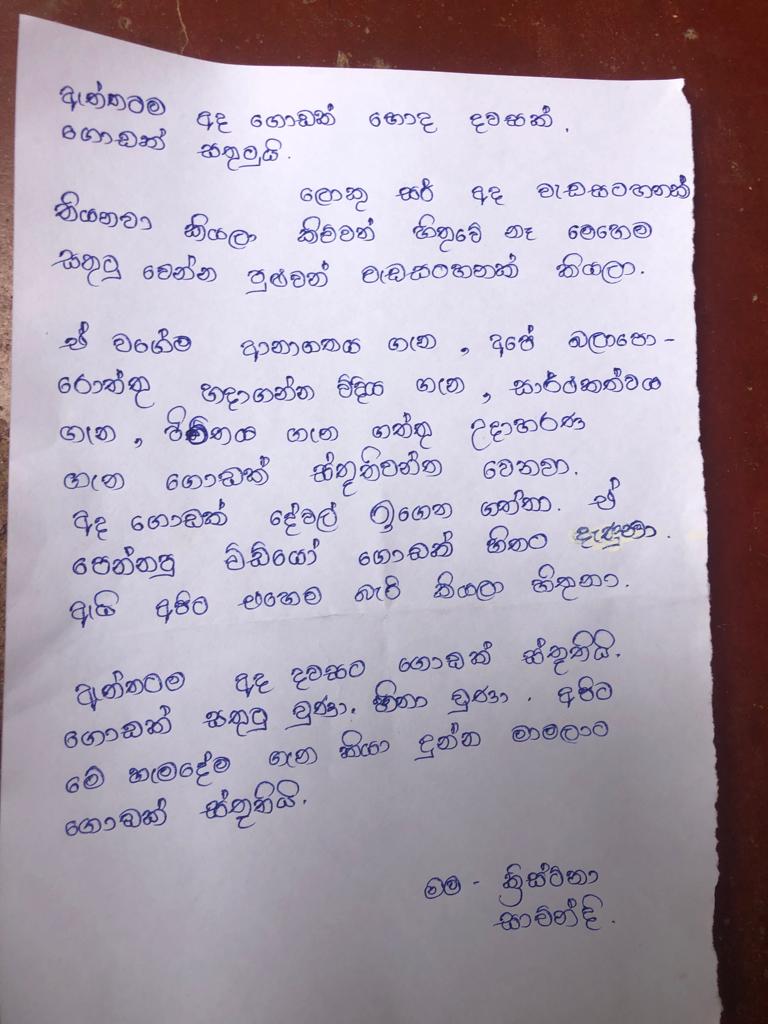 ඇත්තටම අද ගොඩක් හොද දවසක්.
ගොඩක් සතුටුයි.
ලොකු සර් අද වැඩසටහනක්
තියනවා කියලා කිව්වත් හිතුවේ නෑ මෙහෙම
සතුටු වෙන්න පුළුවන් වැඩසටහනක් කියලා.
ඒ වගේම ආනාගතය ගැන, අපේ බලාපො-
රොත්තු හදාගන්න විදිය ගැන, සාර්ථකත්වය
ගැන, ජිවිතය ගැන ගත්තු උදාහරණ
ගැන ගොඩක් ස්තූතිවන්ත වෙනවා.
අද ගොඩක් දේවල් ඉගෙන ගත්තා. ඒ
පෙන්නපු විඩියෝ ගොඩක් හිතට දැනුණා.
ඇයි අපිට එහෙම බැරි කියලා හිතුනා.
ඇත්තටම අද දවසට ගොඩක් ස්තූතියි.
ගොඩක් සතුටු වුණා. හිනා වුණා. අපිට
මේ හැමදේම ගැන කියා දුන්න මාමලාට
ගොඩක් ස්තූතියි.
මම - ක්‍රිස්ටිනා
සාවින්දි.